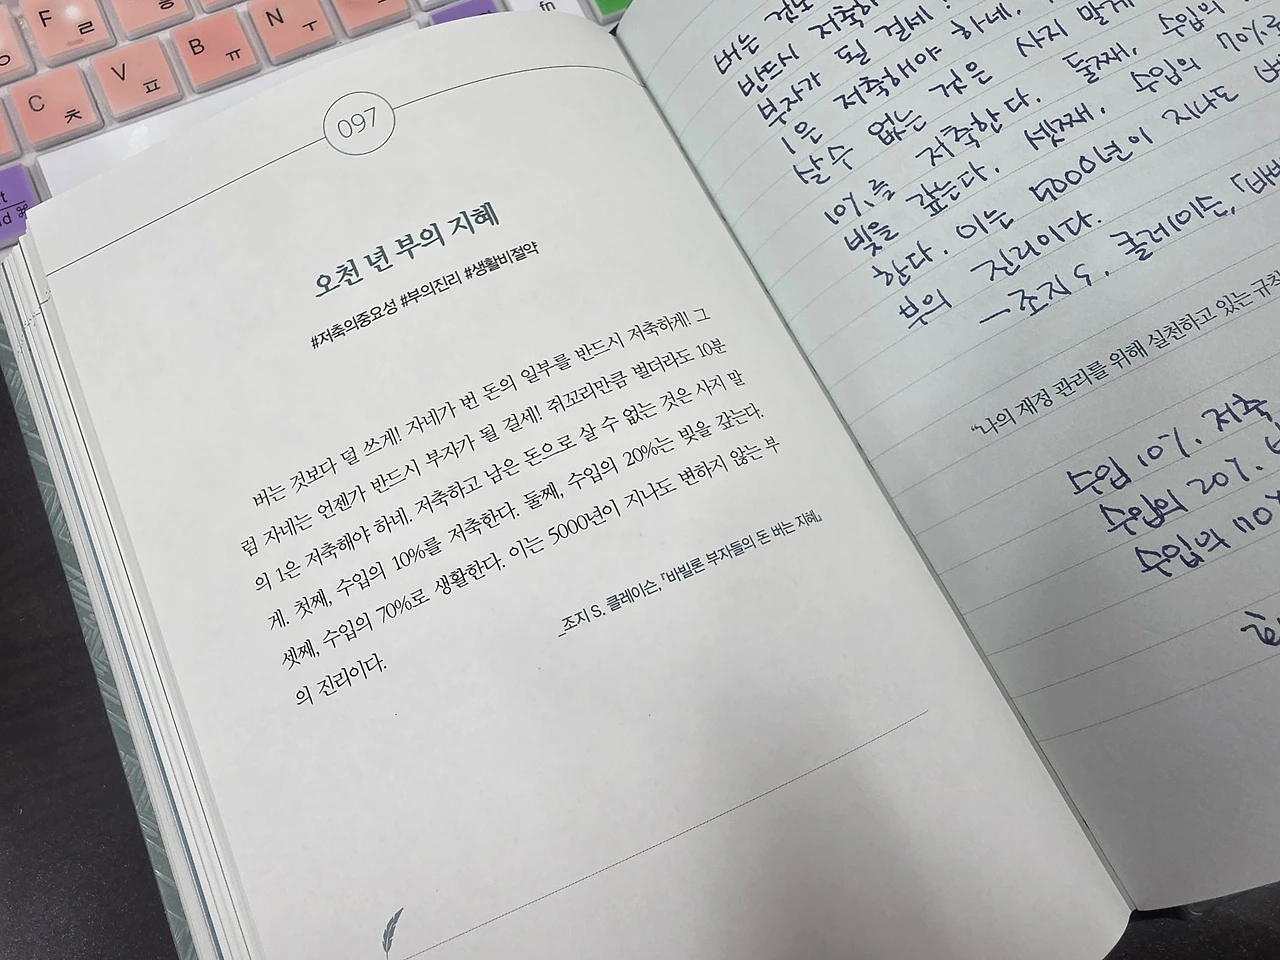 F ㄹ
C ㅊ
V ㅍ
B ㅠ
N ㅜ
fn
097
오천 년 부의 지혜
#저축의중요성 #부의진리 #생활비절약
버는 것보다 덜 쓰게! 자네가 번 돈의 일부를 반드시 저축하게! 그
럼 자네는 언젠가 반드시 부자가 될 걸세! 쥐꼬리만큼 벌더라도 10분
의 1은 저축해야 하네. 저축하고 남은 돈으로 살 수 없는 것은 사지 말
게. 첫째, 수입의 10%를 저축한다. 둘째, 수입의 20%는 빚을 갚는다.
셋째, 수입의 70%로 생활한다. 이는 5000년이 지나도 변하지 않는 부
의 진리이다.
_조지 S. 클레이슨, 『바빌론 부자들의 돈 버는 지혜』
버는
반드시 저축하
부자가 될 걸세!
1은 저축해야 하네.
살 수 없는 것은 사지 말게
10%를 저축한다. 둘째, 수입의
빚을 갚는다. 셋째, 수입의 70%로
한다. 이는 5000년이 지나도
부의 진리이다.
- 조지 S. 클레이슨, 「바빌
"나의 재정 관리를 위해 실천하고 있는 규칙
수입 10%. 저축
수입의 20%.
수입의 70%